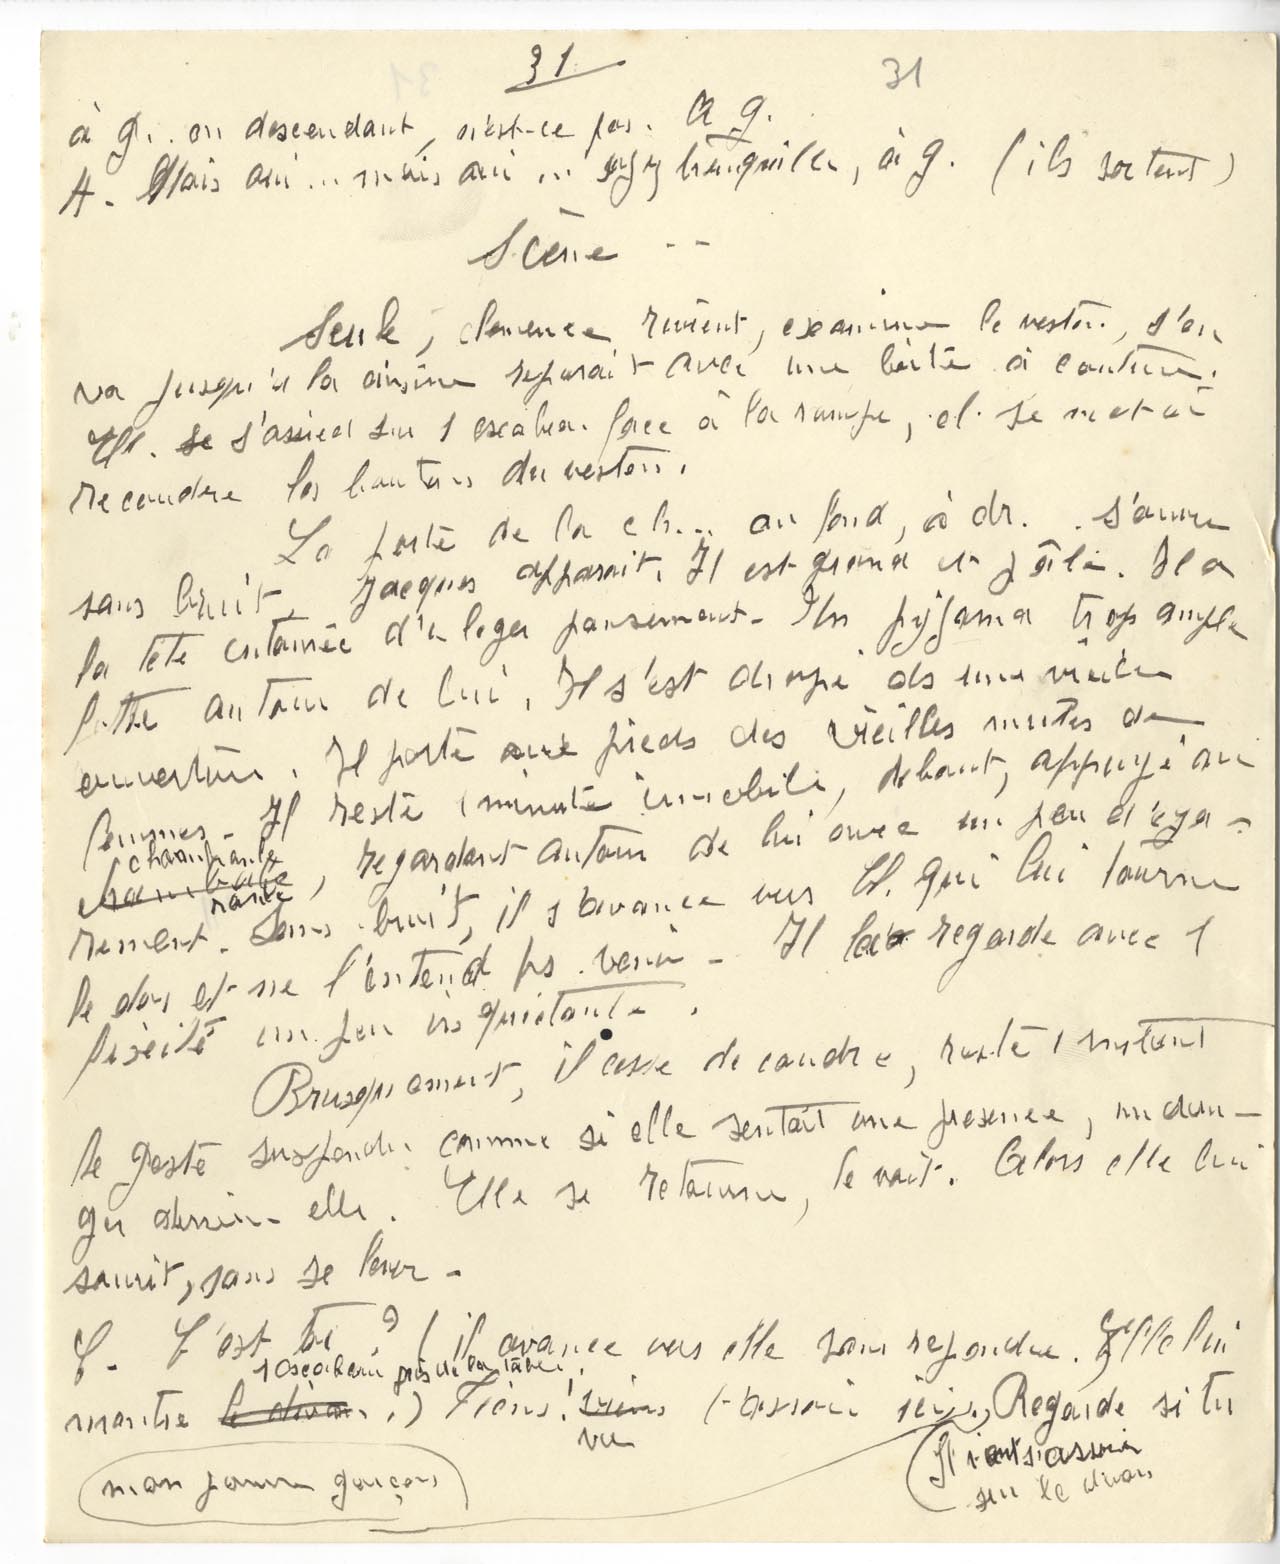 31
31
à g. en descendant, n'est-ce pas. A g.
A. Mais oui ... mais oui ... soyez tranquille, à g. (ils sortent)
Scène --
Seule, clémence revient, examine le veston, s'en
va jusqu'à la cuisine reparait avec une boîte à couture.
Cl. se s'assied sur 1 escabeau face à la rampe, et se met à
recoudre les boutons du veston.
La porte de la ch... au fond, à dr. s'ouvre
sans bruit. Jacques apparait. Il est grand et pâle. Il a
la tête entourée d'un léger pansement. Un pyjama trop ample
flotte autour de lui. Il s'est drapé ds une vieille
couverture. Il porte aux pieds des vieilles mules de
femmes. Il reste 1 minute immobile, debout, appuyé au
chambranle
, regardant autour de lui avec un peu d'éga-
rement. Sans bruit, il s'avance vers Cl. qui lui tourne
le dos et ne l'entend ps venir - Il la regarde avec 1
fixité un peu inquiétante.
Brusquement, il cesse de coudre, reste 1 instant
le geste suspendu comme si elle sentait une présence, un dan-
ger derrière elle. Elle se retourne, le voit. Alors elle lui
sourit, sans se lever -
C. C'est toi ? (il avance vers elle sans répondre. Elle lui
1 escabeau près de la table
montre le divan.) Tiens! viens t'assoir ici, Regarde si tu
mon jeune garçon
Il vient s'assoir
sur le divan